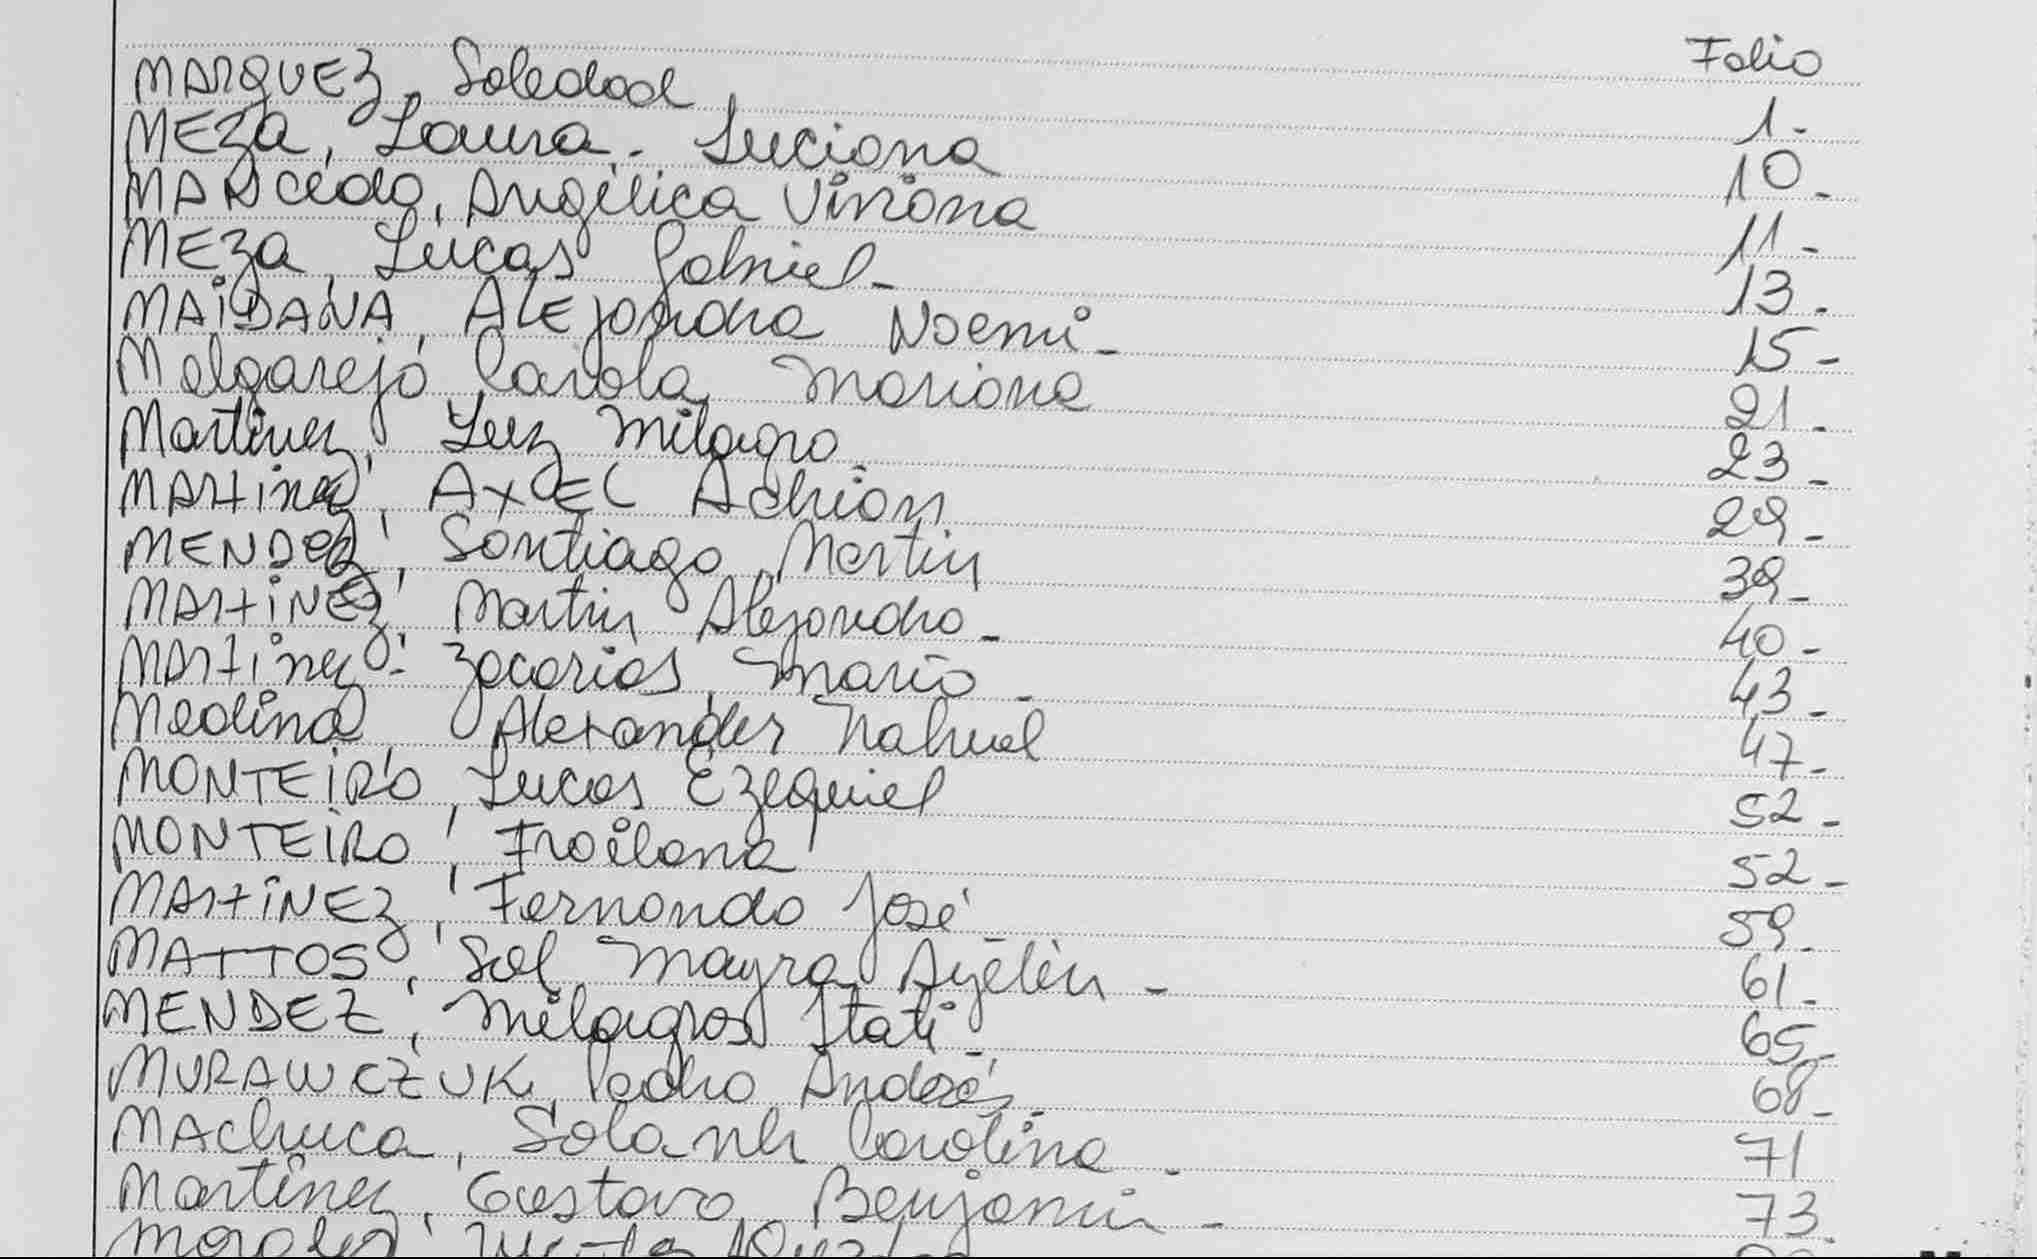 Folio
MARQUEZ, Soledad 1-
MEZa, Laura - Luciana 10-
MARCEdo, Angélica Viviana 11-
MEZa, Lucas Gabriel - 13-
MAiDANA, ALEjandra Noemi - 15-
Melgarejo Carola Mariana 21-
Martinez, Luz Milagro - 23-
MARtinez, AxEL Adrian 29-
MENDez, Santiago Martin 39-
MARtiNEz, Martin Alejandro - 40-
MARtinez - Zacarias, Mario - 43-
Medina Alexander Nahuel 47-
MONTEiRO, Lucas Ezequiel 52-
MONTEiRO, Froilana 52-
MARtiNEz, Fernando José 59-
MATTOS, Sol Mayra Ayelén - 61-
MENDEZ, Milagros Itati - 65-
MURAWCZUK, Pedro Andrés - 68-
MAchuca, Carolina - 71
Martinez, Gustavo Benjamin - 73